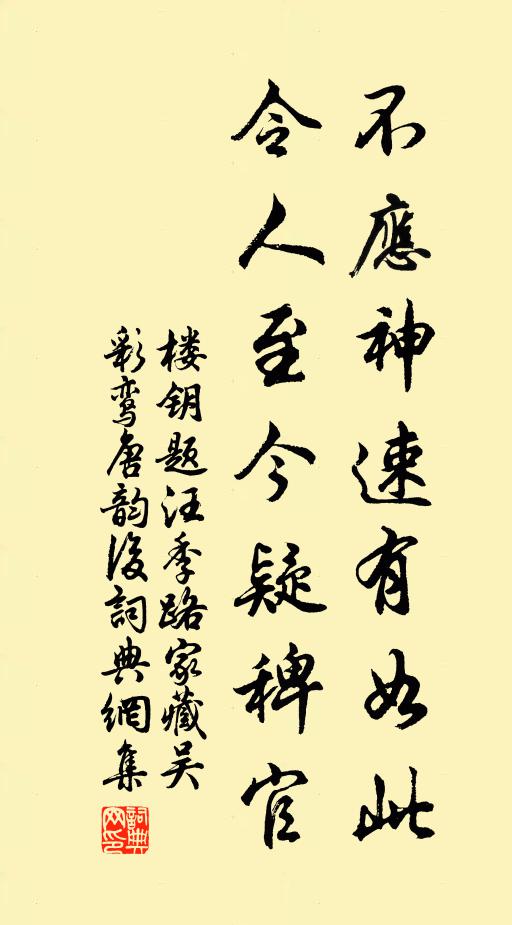 不應神速有如此
令人至今疑稗官
楼钥题汪季路家藏吴
彩鸾唐韵後詞典網集
詞典網印